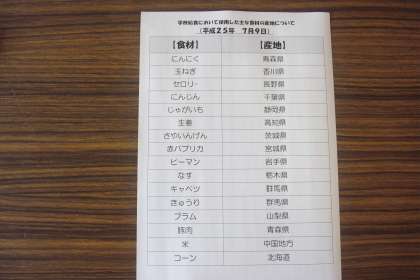 学校給食において使用した主な食材の産地について
（平成２５年　７月９日）
【食材】　【産地】
にんにく　青森県
玉ねぎ　香川県
セロリ－　長野県
にんじん　千葉県
じゃがいも　静岡県
生姜　高知県
さやいんげん　茨城県
赤パプリカ　宮城県
ピーマン　岩手県
なす　栃木県
キャベツ　群馬県
きゅうり　群馬県
プラム　山梨県
豚肉　青森県
米　中国地方
コーン　北海道